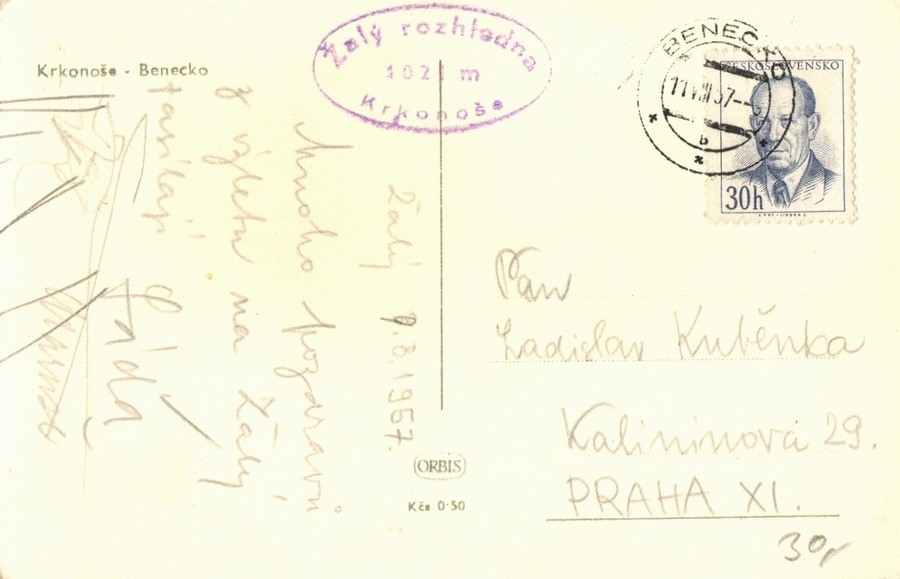 Krkonoše - Benecko
Žalý rozhledna
1021 m
Krkonoše
BENECKO
11.VIII.57
b
ČESKOSLOVENSKO
30h
Žalý 9.8.1957.
Mnoho pozdravů
z výletu na Žalý
zasílají
Láďa
Pan
Ladislav Kuběnka
Kalininova 29.
PRAHA XI.
ORBIS
Kčs 0·50
30,-